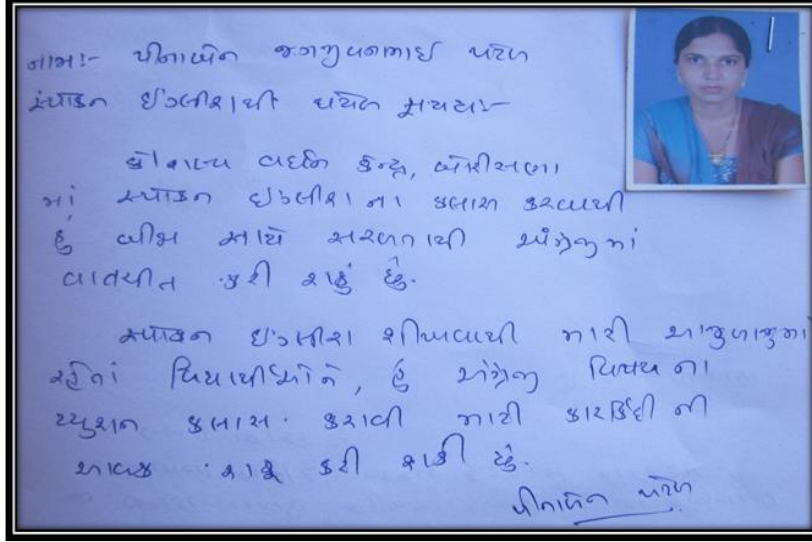 નામ:- પીનાબેન જગજીવનભાઈ પટેલ
સ્પોકન ઈંગ્લીશથી થયેલ ફાયદા:-
કૌશલ્ય વર્ધન કેન્દ્ર, બોરીસણા
માં સ્પોકન ઇંગ્લીશ ના કલાસ કરવાથી
હું બીજા સાથે સરળતાથી અંગ્રેજીમાં
વાતચીત કરી શકું છું.
સ્પોકન ઇંગ્લીશ શીખવાથી મારી આજુબાજુમાં
રહેતાં વિદ્યાર્થીઓને, હું અંગ્રેજી વિષય ના
ટ્યુશન કલાસ કરાવી મારી કારકિર્દી ની
આવક શરૂ કરી શકી છું.
પીનાબેન પટેલ